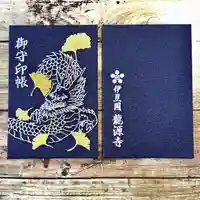 御守印帳
伊豆國 龍源寺